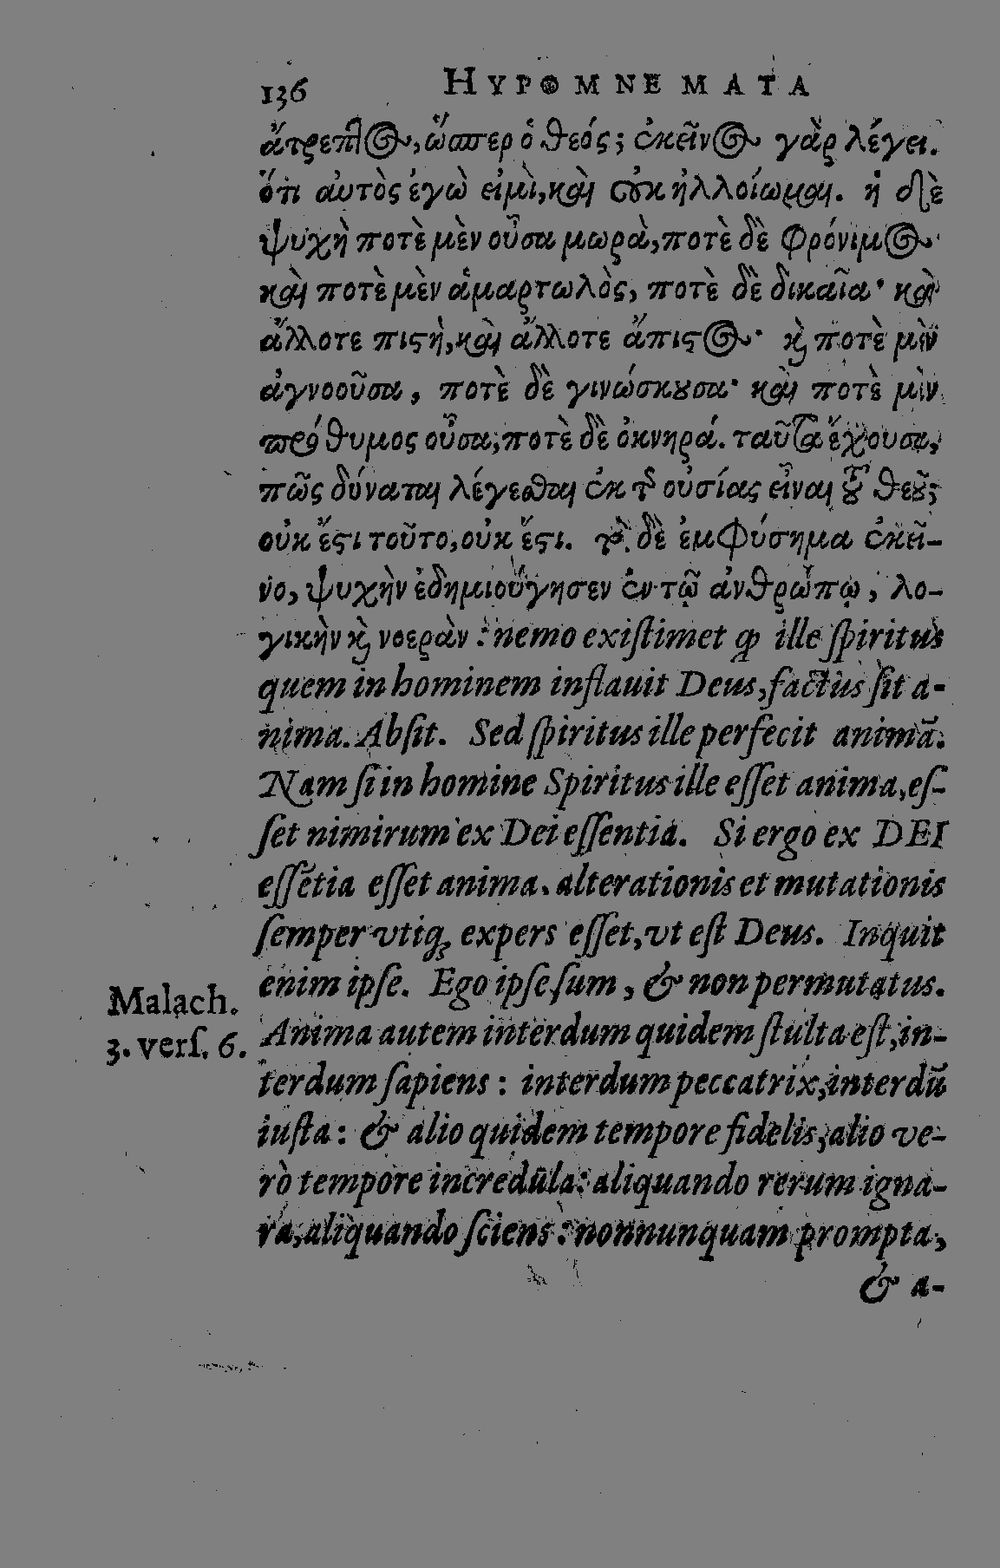 136 HYPOMNEMATA
ἄτρεπτος, ὥσπερ ὁ θεός; ἐκεῖνος γὰρ λέγει.
ὅτι αὐτὸς ἐγὼ εἰμὶ, καὶ οὐκ ἠλλοίωμαι. ἡ δὲ
ψυχὴ ποτὲ μὲν οὖσα μωρὰ, ποτὲ δὲ φρόνιμος·
καὶ ποτὲ μὲν ἁμαρτωλὸς, ποτὲ δὲ δικαῖα· καὶ
ἄλλοτε πιστὴ, καὶ ἄλλοτε ἄπιστος· καὶ ποτὲ μὲν
ἀγνοοῦσα, ποτὲ δὲ γινώσκουσα· καὶ ποτὲ μὲν
πρόθυμος οὖσα, ποτὲ δὲ ὀκνηρά. ταῦτα ἔχουσα,
πῶς δύναται λέγεσθαι ἐκ τῆς οὐσίας εἶναι τοῦ θεοῦ;
οὐκ ἔστι τοῦτο, οὐκ ἔστι. τὸ δὲ ἐμφύσημα ἐκεῖ-
νο, ψυχὴν ἐδημιούγησεν ἐν τῷ ἀνθρώπῳ, λο-
γικὴν καὶ νοερὰν : nemo exiſtimet qp ille ſpiritus
quem in hominem inflauit Deus, factus ſit a-
nima. Abſit. Sed ſpiritus ille perfecit animā.
Nam ſi in homine Spiritus ille eſſet anima, eſ-
ſet nimirum ex Dei eſſentia. Si ergo ex DEI
eſſētia eſſet anima. alterationis et mutationis
ſemper vtiq; expers eſſet, vt eſt Deus. Inquit
enim ipſe. Ego ipſe ſum, & non permutatus.
Malach.
3. verſ. 6.
Anima autem interdum quidem ſtulta eſt, in-
terdum ſapiens : interdum peccatrix, interdū
iuſta : & alio quidem tempore fidelis, alio ve-
rò tempore incredula : aliquando rerum igna-
ra, aliquando ſciens : nonnunquam prompta,
& a-